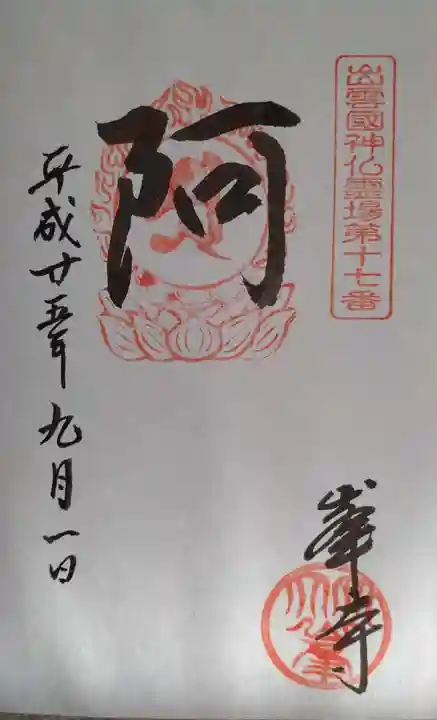 出雲國神仏霊場第十七番
阿
峯寺
平成廿五年九月一日